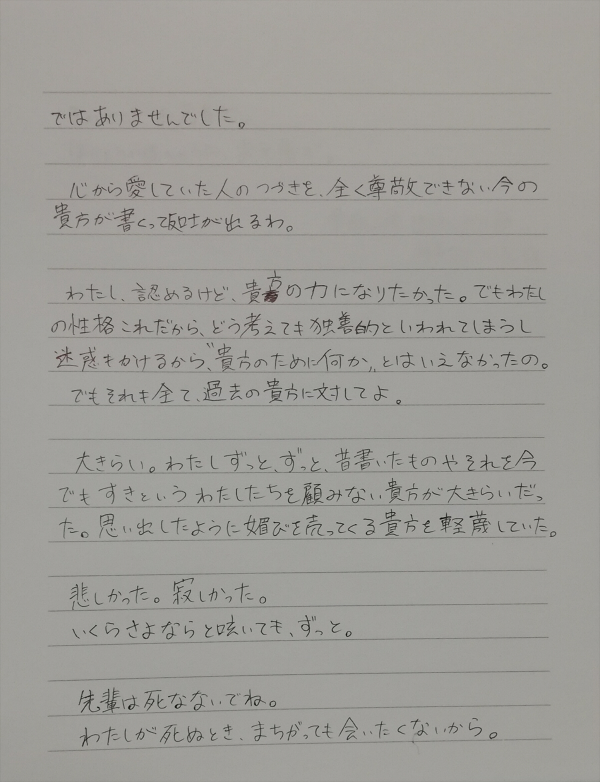 ではありませんでした。
心から愛していた人のつづきを、全く尊敬できない今の
貴方が書くって反吐が出るわ。
わたし、認めるけど、貴方の力になりたかった。でもわたし
の性格これだから、どう考えても独善的といわれてしまうし
迷惑もかけるから、〝貴方のために何か〟とはいえなかったの。
でもそれも全て、過去の貴方に対してよ。
大きらい。わたしずっと、ずっと、昔書いたものやそれを今
でもすきというわたしたちを顧みない貴方が大きらいだっ
た。思い出したように媚びを売ってくる貴方を軽蔑していた。
悲しかった。寂しかった。
いくらさよならと呟いても、ずっと。
先輩は死なないでね。
わたしが死ぬとき、まちがっても会いたくないから。